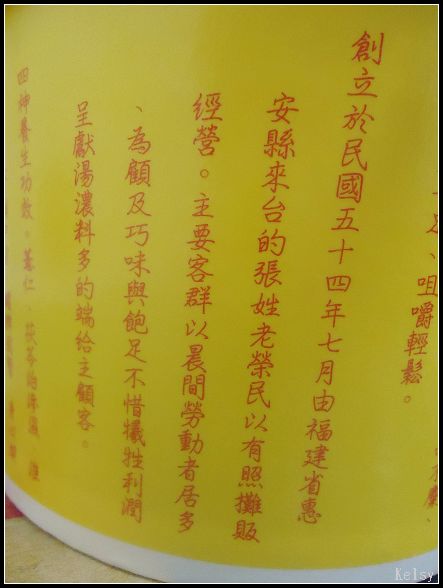 咀嚼輕鬆。
創立於民國五十四年七月由福建省惠
安縣來台的張姓老榮民以有照攤販
經營。主要客群以晨間勞動者居多
、為顧及巧味與飽足不惜犧牲利潤
呈獻湯濃料多的端給主顧客。
四神養生功效。薏仁、茯苓
Kelsy